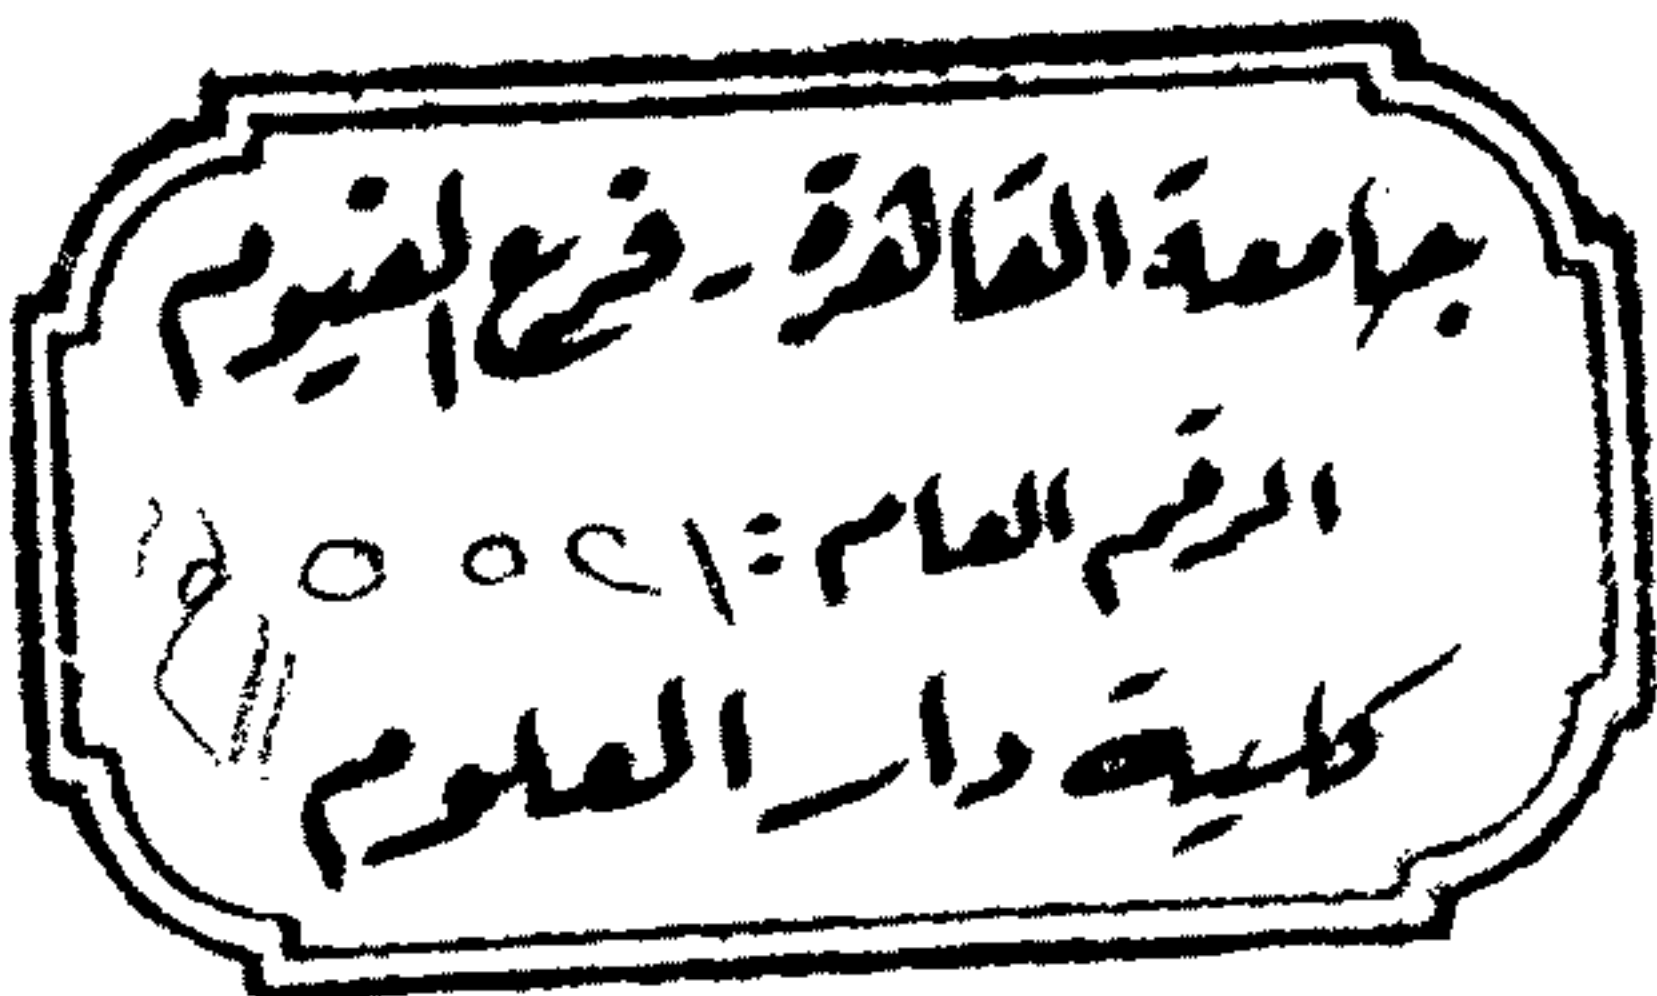 جامعة القاهرة - فرع الفيوم
الرقم العام : ٥٥٢١
كلية دار العلوم